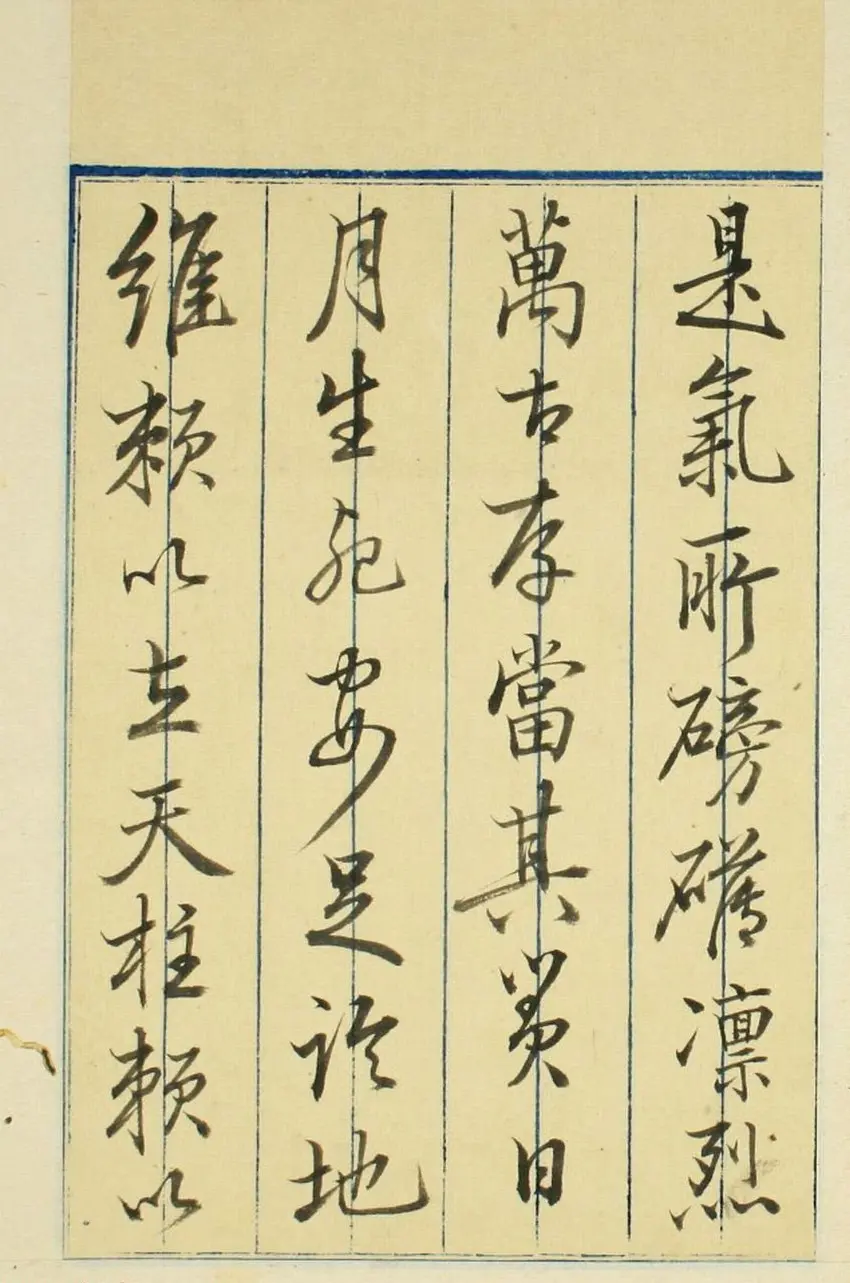 是氣所磅礴凛烈
萬古存當其貫日
月生死安足論地
維賴以立天柱賴以